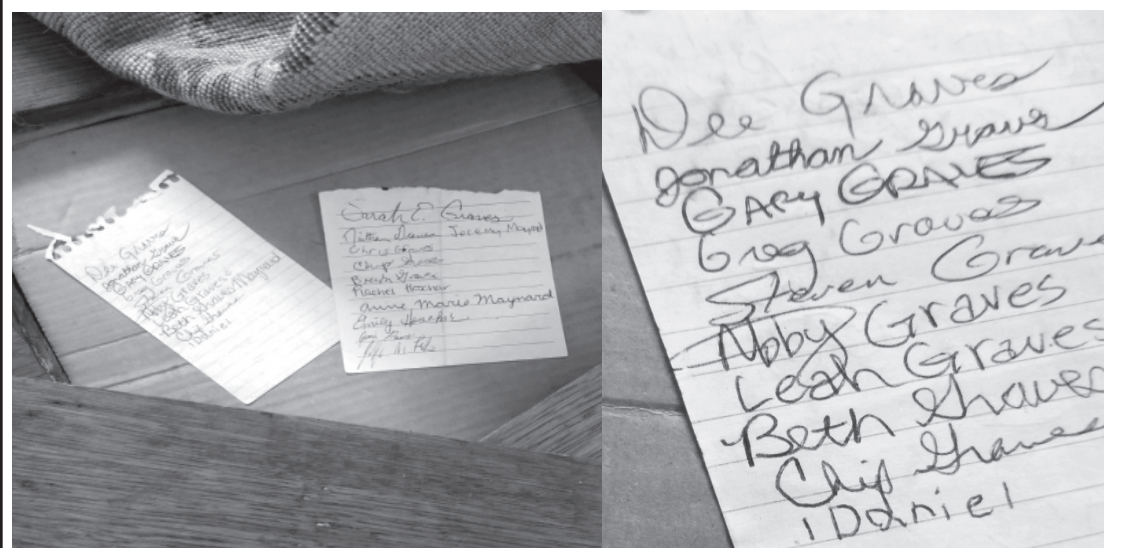 Dee Graves
Jonathan Graves
Gary GRAVES
Greg Graves
Steven Graves
Abby Graves
Leah Graves
Beth Graves Maynard
Chip Graves
Daniel
Sarah E. Graves
Jeremy Maynard
Chris Graves
Chip Graves
Rachel
Anne Marie Maynard
Emily
Dee Graves
Jonathan Graves
GARY GRAVES
Greg Graves
Steven Grav
Abby Graves
Leah Graves
Beth Graves
Chip Graves
Daniel